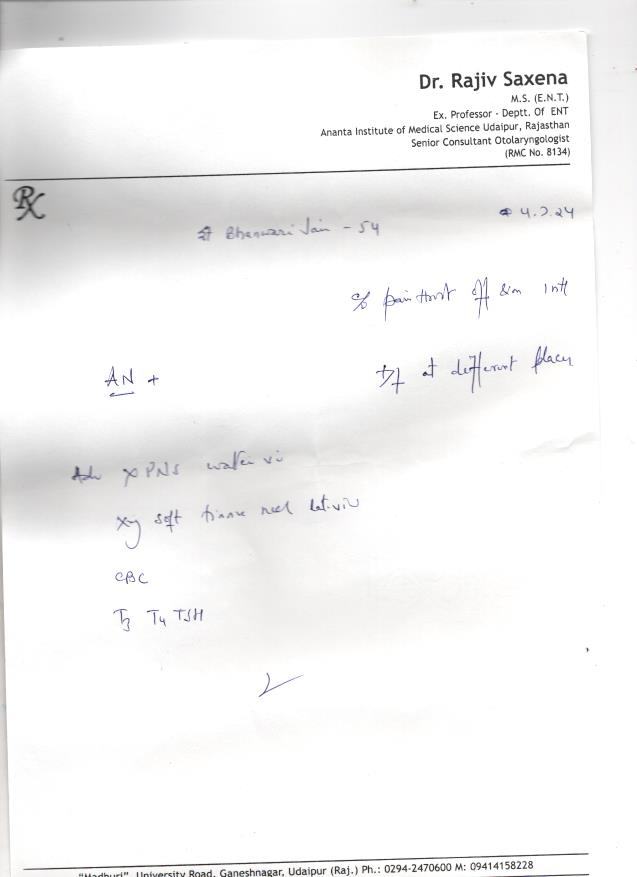 Dr. Rajiv Saxena
M.S. (E.N.T.)
Ex. Professor - Deptt. Of ENT
Ananta Institute of Medical Science Udaipur, Rajasthan
Senior Consultant Otolaryngologist
(RMC No. 8134)
Rx
4.7.24
Bhanwari Jain - 54
c/o pain throat off &
AN +
T/t at different places
Adv X PNS water vi
Xy soft tissue neck lat. view
CBC
T3 T4 TSH
"Madhuri", University Road, Ganeshnagar, Udaipur (Raj.) Ph.: 0294-2470600 M: 09414158228